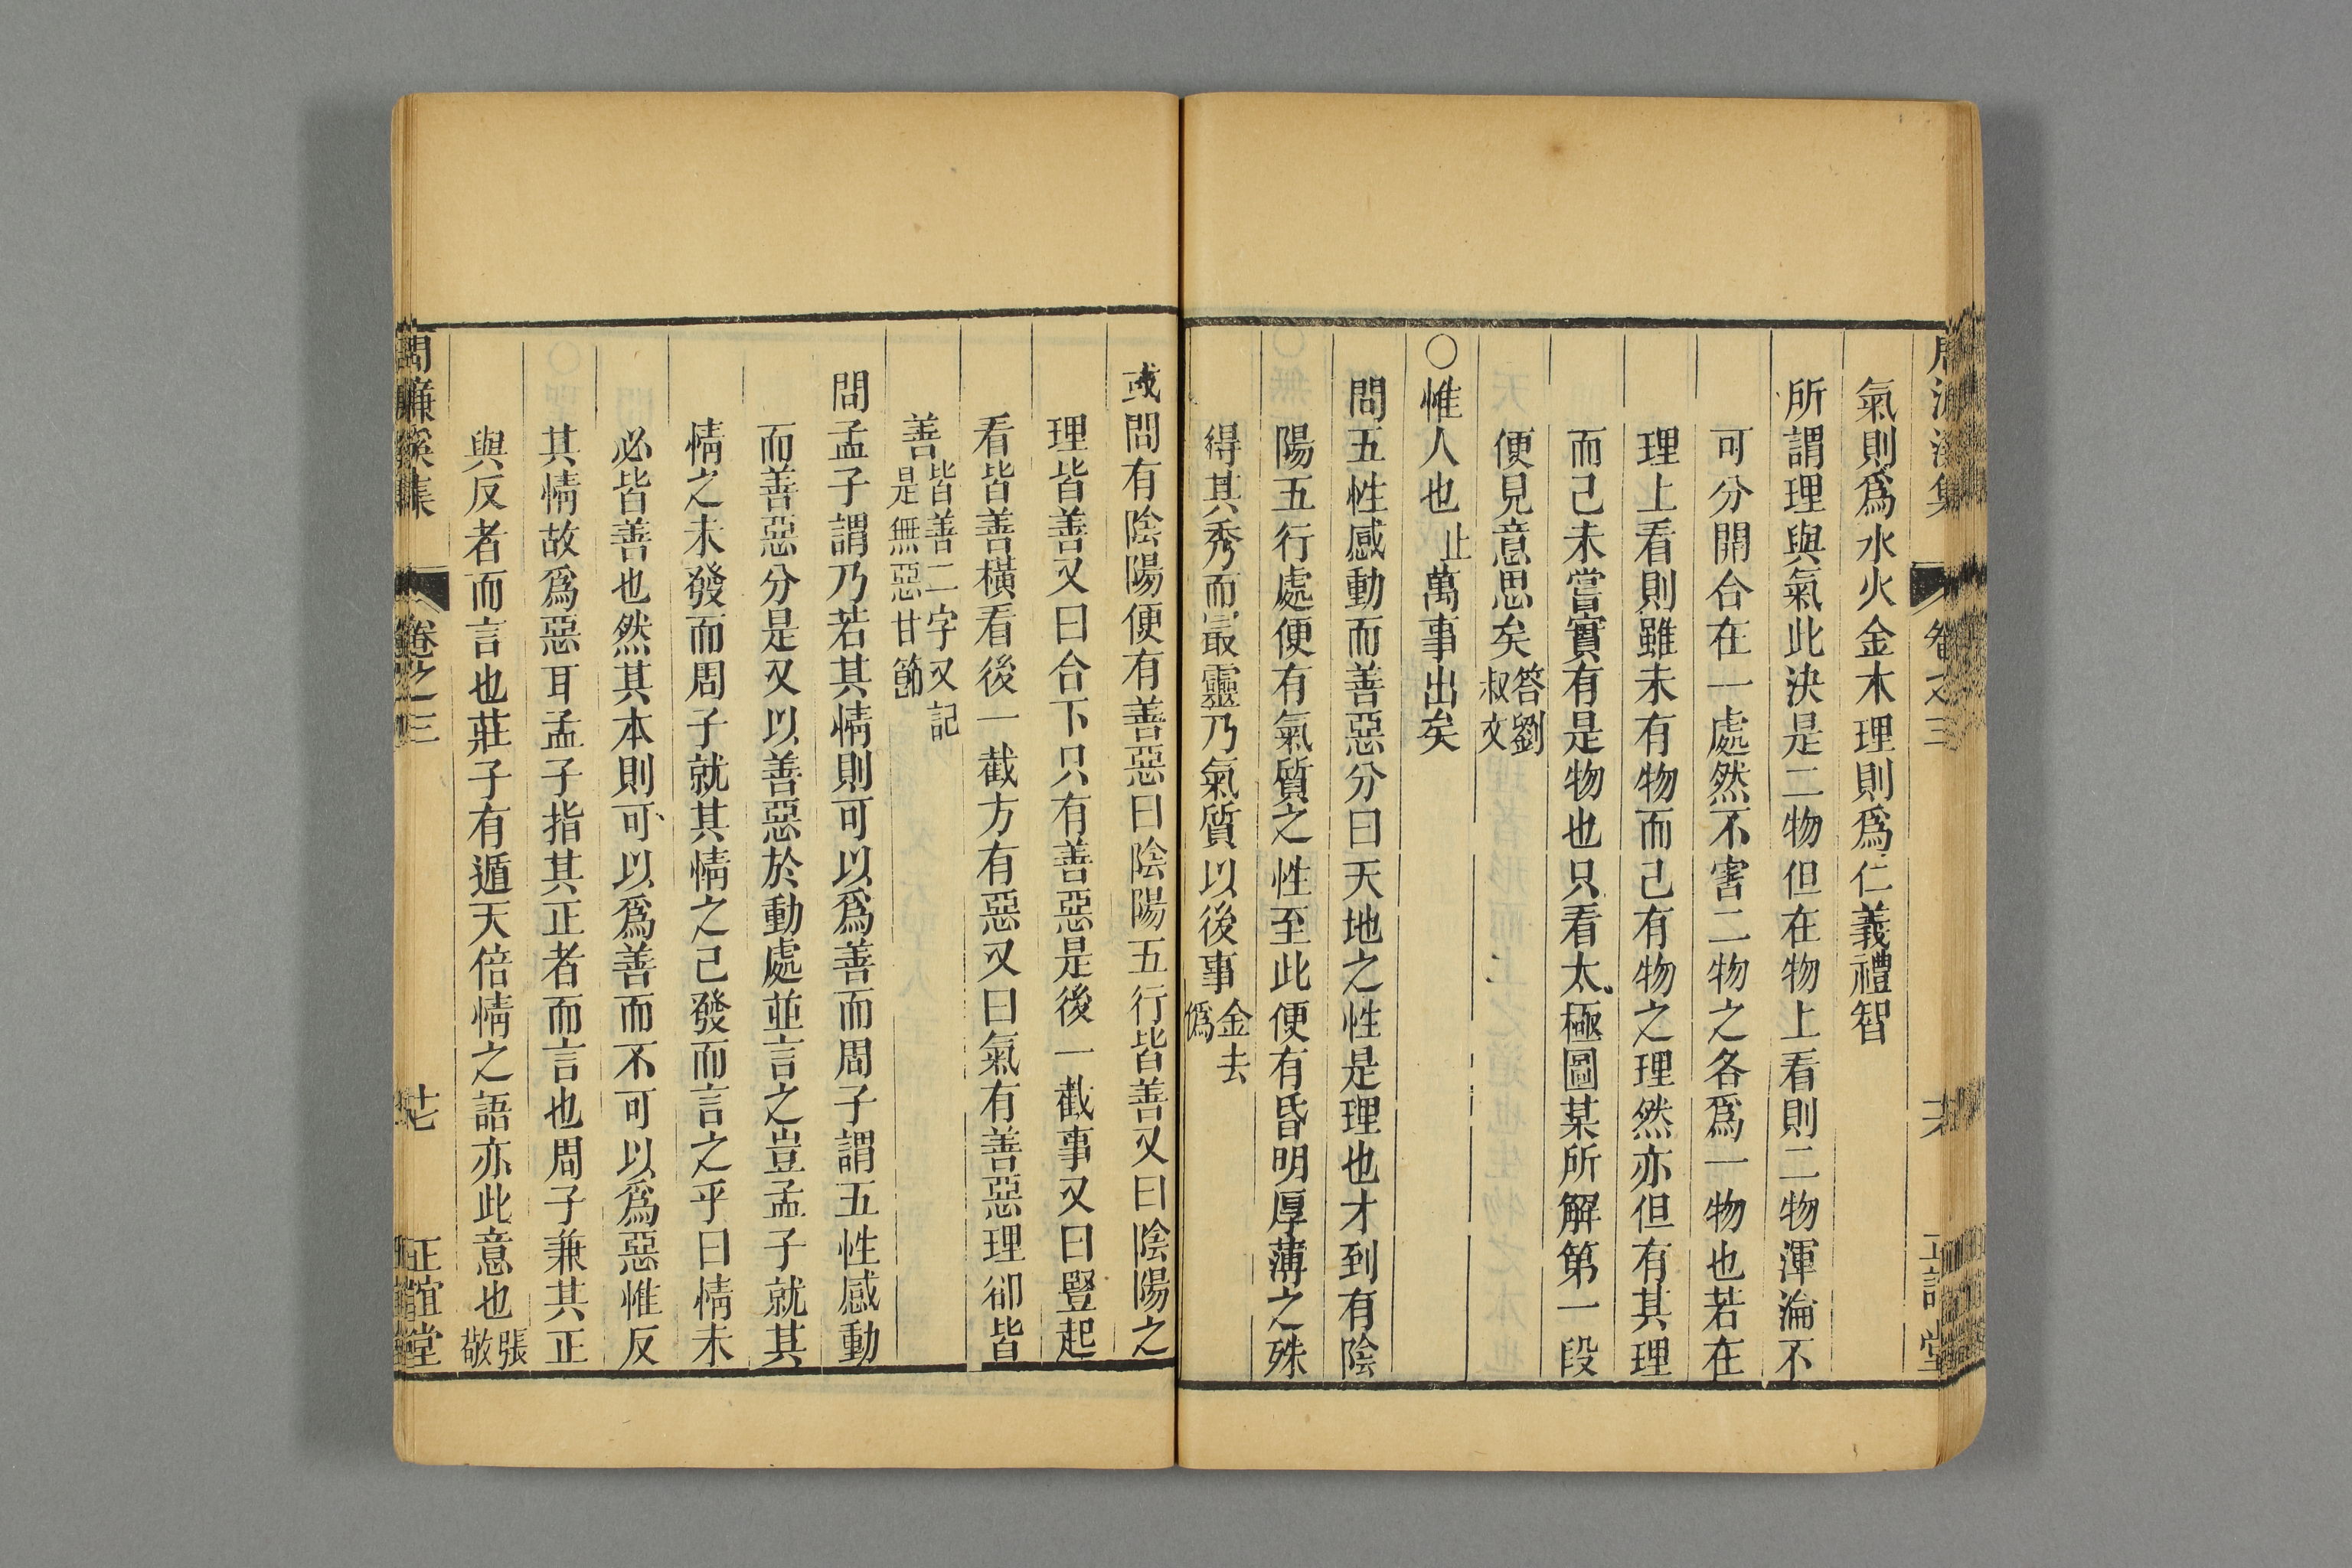 氣則爲水火金木理則爲仁義禮智
所謂理與氣此決是二物但在物上看則二物渾淪不
可分開合在一處然不害二物之各爲一物也若在
理上看則雖未有物而己有物之理然亦但有其理
而己未嘗實有是物也只看太極圖某所解第一段
便見意思矣答劉叔文
○惟人也止萬事出矣
問五性感動而善惡分曰天地之性是理也才到有陰
陽五行處便有氣質之性至此便有昏明厚薄之殊
得其秀而最靈乃氣質以後事金去僞
或問有陰陽便有善惡曰陰陽五行皆善又曰陰陽之
理皆善又曰合下只有善惡是後一截事又曰豎起
看皆善橫看後一截方有惡又曰氣有善惡理卻皆
善皆善二字又記是無惡甘節
問孟子謂乃若其情則可以爲善而周子謂五性感動
而善惡分是又以善惡於動處並言之豈孟子就其
情之未發而周子就其情之己發而言之乎曰情未
必皆善也然其本則可以爲善而不可以爲惡惟反
其情故爲惡耳孟子指其正者而言也周子兼其正
與反者而言也莊子有遁天倍情之語亦此意也張敬
周濂溪集 卷之三 廿七 正誼堂